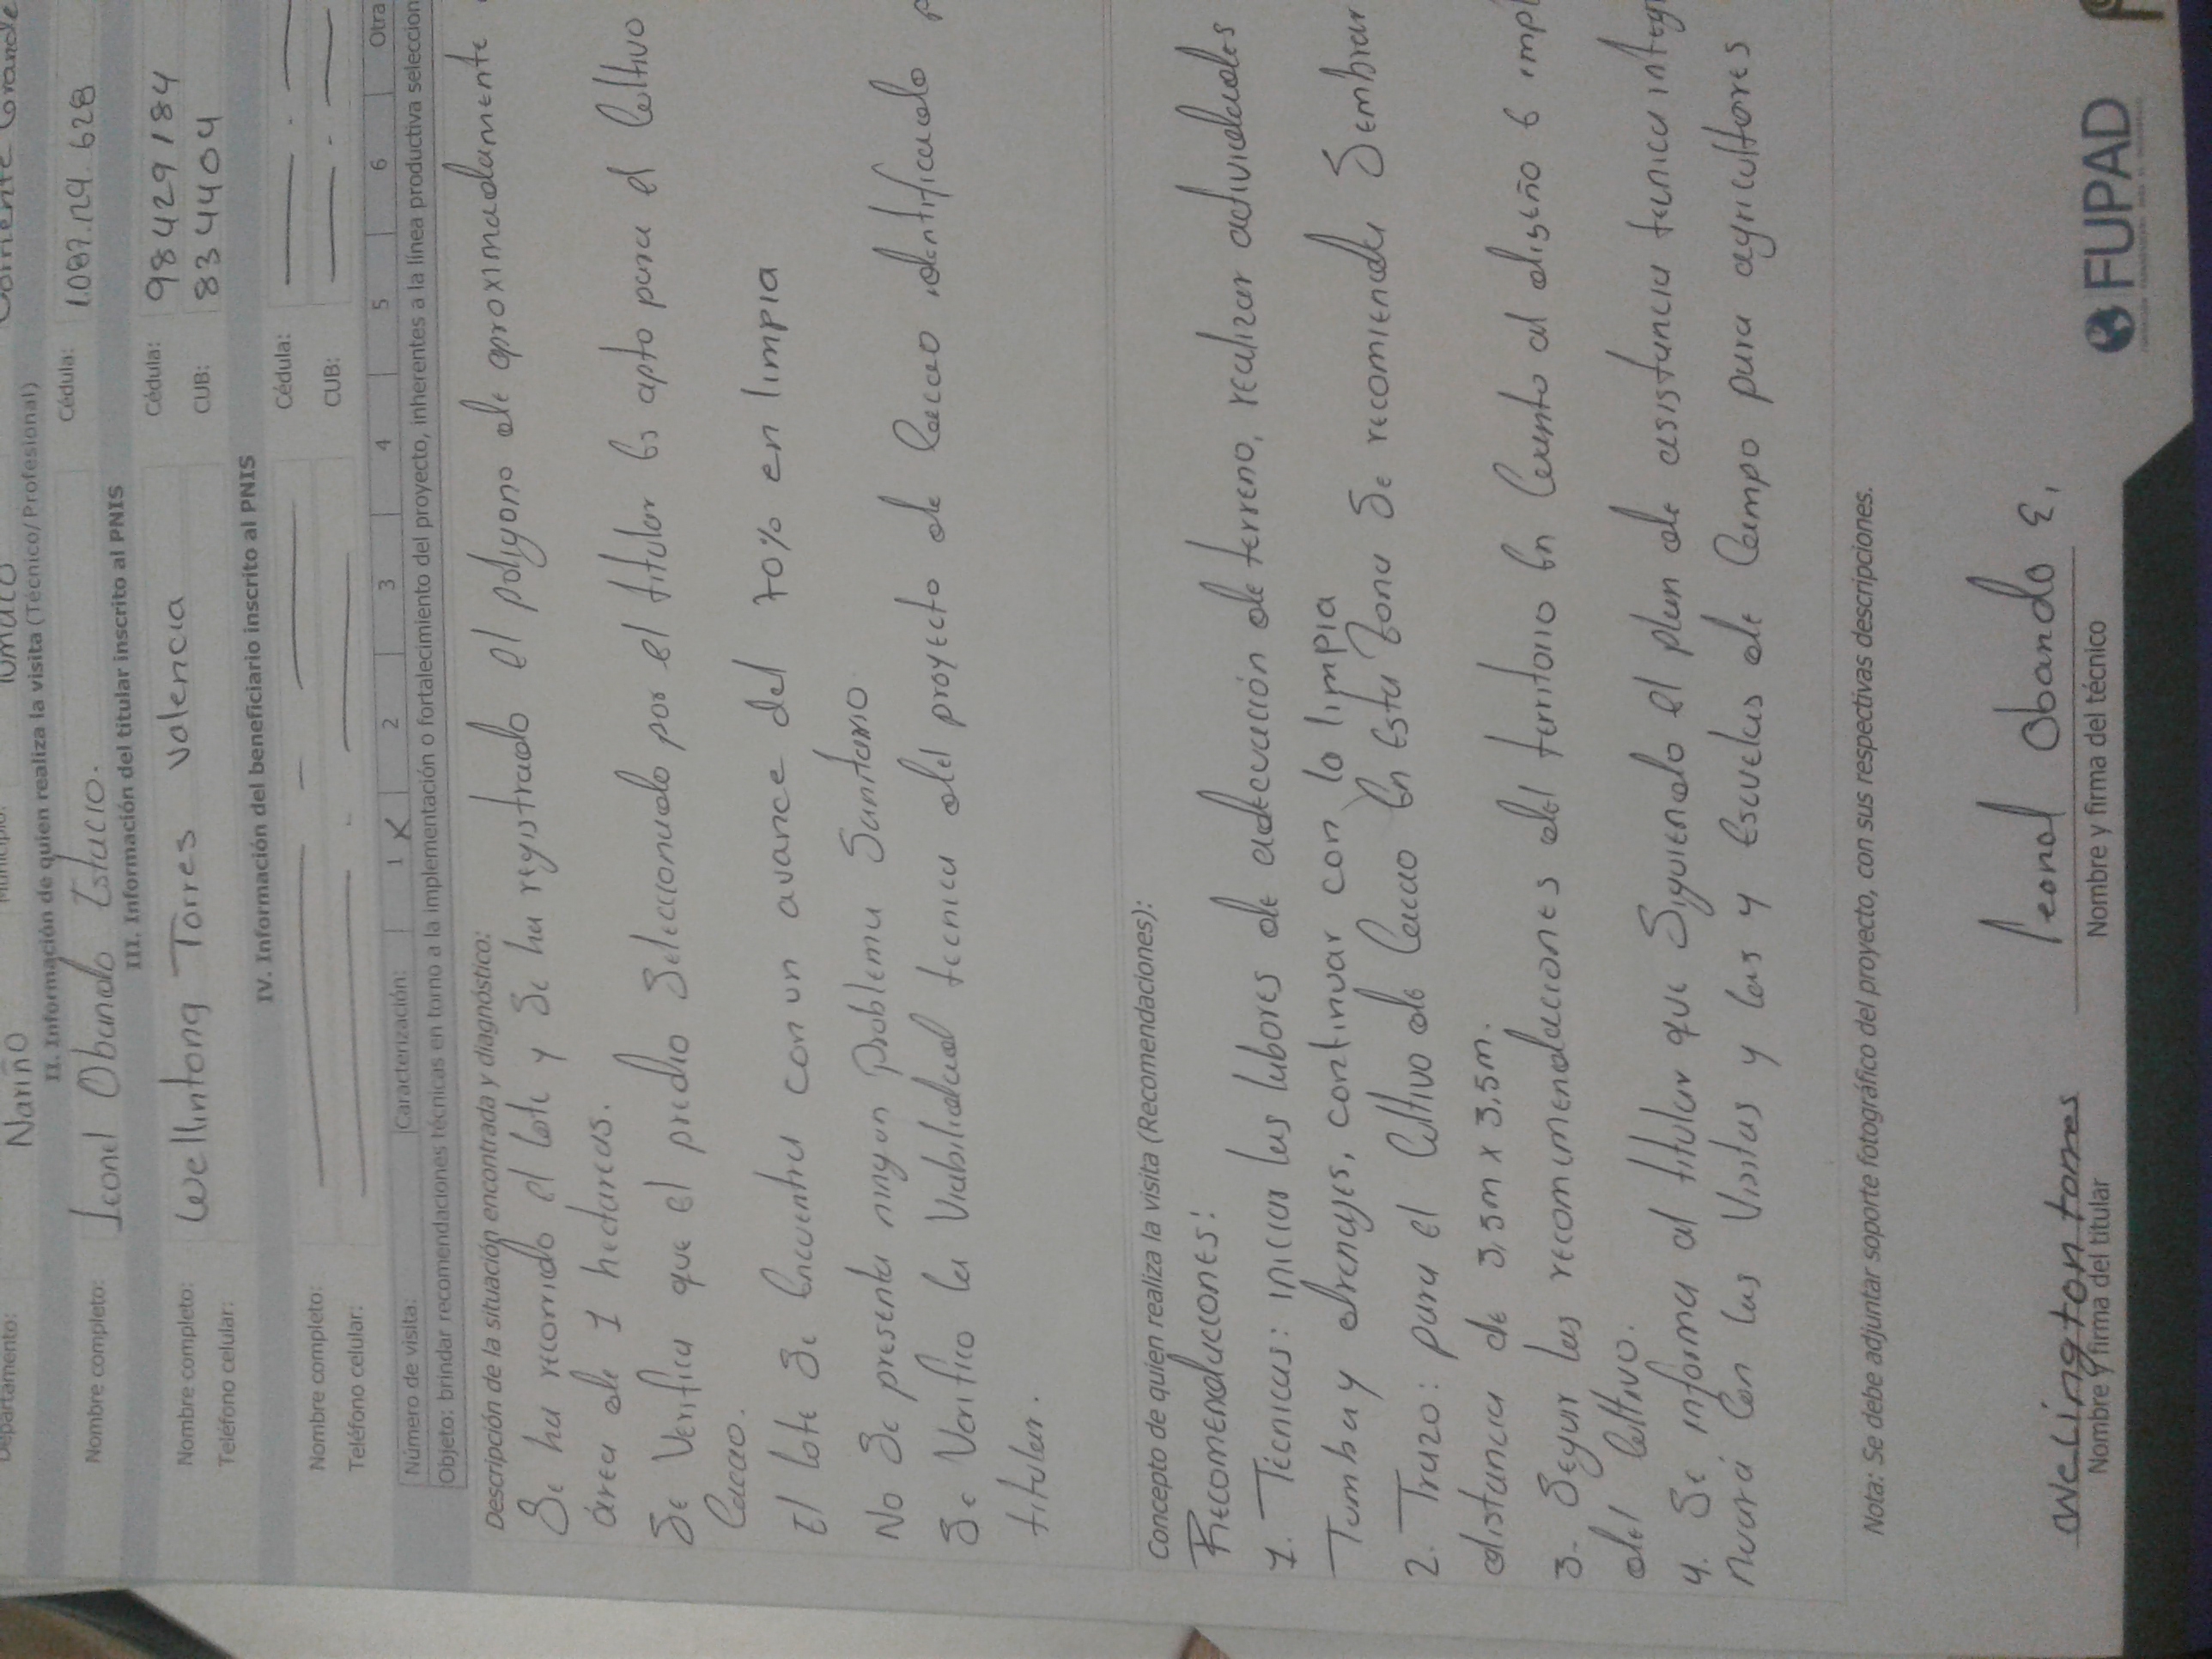 Departamento: Nariño Municipio: Tumaco Corriente Grande
II. Información de quien realiza la visita (Técnico/Profesional)
Nombre completo: Leonel Obando Estacio. Cédula: 1.087.129.628
III. Información del titular inscrito al PNIS
Nombre completo: Wellintong Torres Valencia Cédula: 98429184
Teléfono celular: CUB: 834404
IV. Información del beneficiario inscrito al PNIS
Nombre completo: Cédula:
Teléfono celular: CUB:
Número de visita: Caracterización: 1 X 2 3 4 5 6 Otra
Objeto: brindar recomendaciones técnicas en torno a la implementación o fortalecimiento del proyecto, inherentes a la línea productiva seleccion
Descripción de la situación encontrada y diagnóstico:
Se ha recorrido el lote y se ha registrado el poligono de aproximadamente
área de 1 hectareas.
Se Verifica que el predio Seleccionado por el titular Es apto para el Cultivo
Cacao.
El lote Se Encuentra con un avance del 70% en limpia
No Se presenta ningun problema Sanitario.
Se Verifico la Viabilidad tecnica del proyecto de Cacao identificado p
titular.
Concepto de quien realiza la visita (Recomendaciones):
Recomendaciones:
1. Tecnicas: iniciar las labores de adecuación de terreno, realizar actividades
Tumba y drenajes, continuar con lo limpia
2. Trazo: para el Cultivo de Cacao En Esta Zona Se recomienda Sembrar
distancia de 3,5m x 3,5m.
3- Seguir las recomendaciones del territorio En Cuanto al diseño E impl
del Cultivo.
4. Se informa al titular que Siguiendo el plan de asistencia tecnica integr
nuará Con las Visitas y las y Escuelas de Campo para agricultores
Nota: Se debe adjuntar soporte fotográfico del proyecto, con sus respectivas descripciones.
Welington torres Leonel Obando E.
Nombre y firma del titular Nombre y firma del técnico
FUPAD